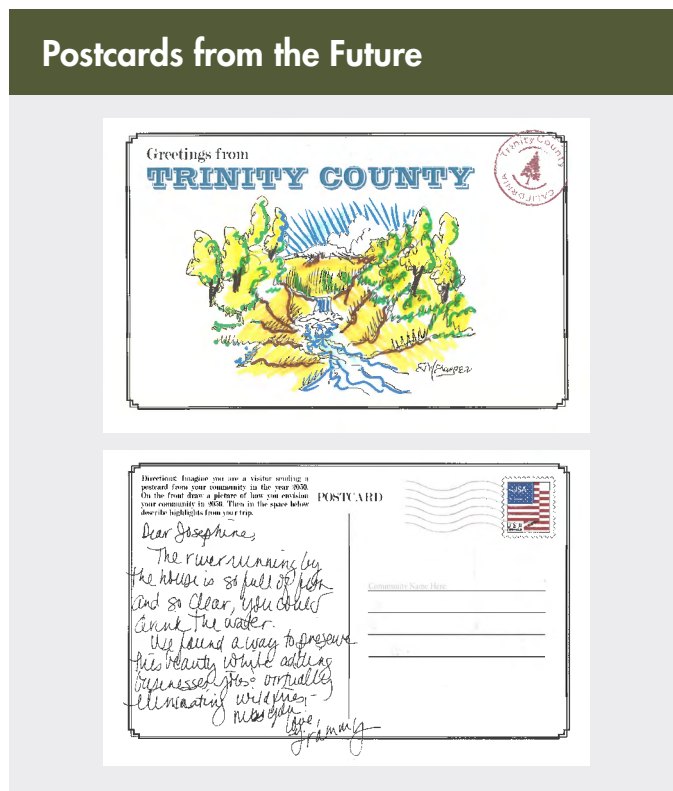 Postcards from the Future
Greetings from
TRINITY COUNTY
Trinity County
CALIFORNIA
Directions: Imagine you are a visitor sending a
postcard from your community in the year 2050.
On the front draw a picture of how you envision
your community in 2050. Then in the space below
describe highlights from your trip.
POSTCARD
USA
Dear Josephine,
The river running by
the house is so full of fish
and so clear, you could
drink the water.
We found a way to preserve
this beauty while adding
businesses, jobs & virtually
eliminating wildfires –
miss you
love
Grammy
Community Name Here